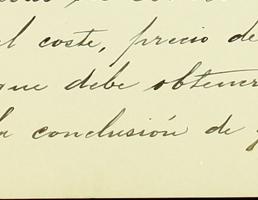 el coste, precio de
que debe obtener
la conclusión de